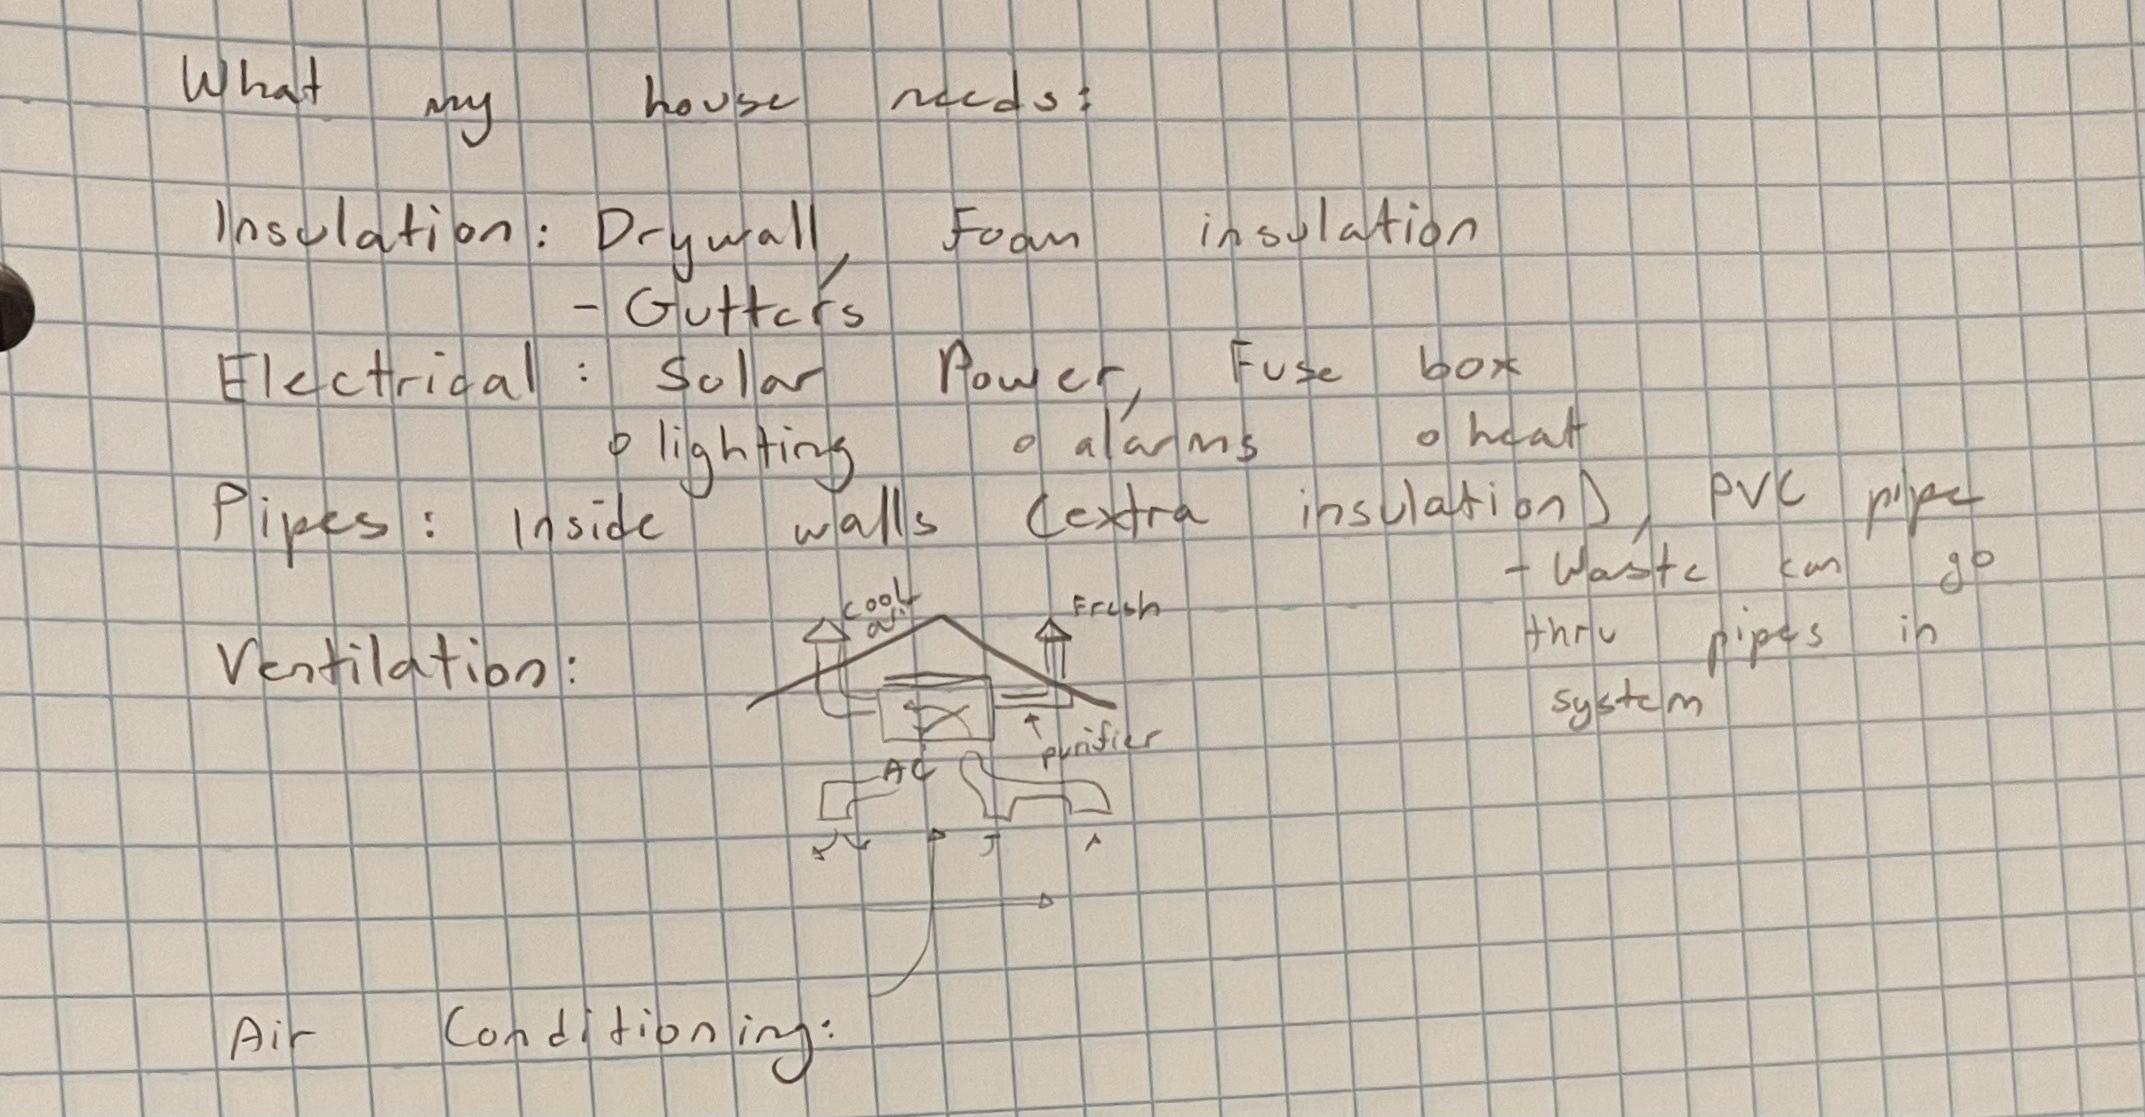 What my house needs:
Insulation: Drywall, Foam insulation
- Gutters
Electrical: Solar Power, Fuse box
o lighting o alarms o heat
Pipes: Inside walls (extra insulation), PVC pipe
- Waste can go
thru pipes in
system
Ventilation:
cool
air
Fresh
purifier
AC
Air Conditioning: